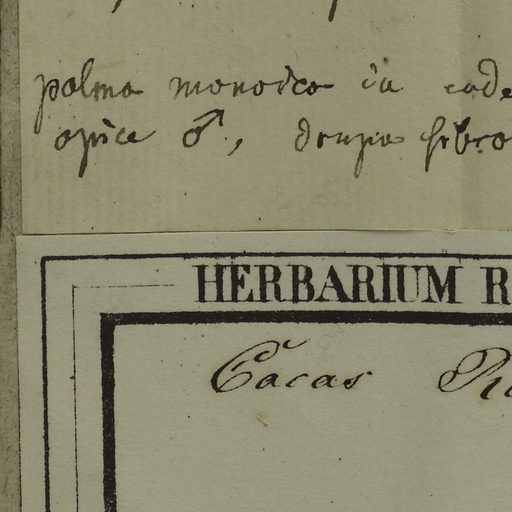 palma monoica in eade
apice ♂, drupa fibro
HERBARIUM R
Cacas